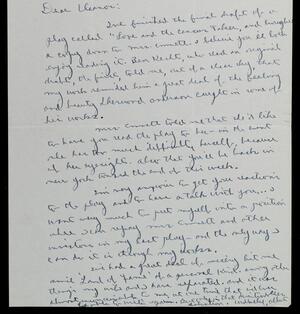 Dear Eleanor:
I've finished the final draft of a
play called "Love and the Census Taker, and brought
a copy down to Mrs. Emmett. I believe you'll both
enjoy reading it. Ben Hecht, who read an original
draft, the first, told me, out of a clear sky, that
my work reminded him a great deal of the feeling
and beauty Sherwood Anderson caught in some of
his works.
Mrs. Emmett told me that she'd like
to have you read the play to her in the event
she has too much difficulty herself, because
of her eyesight. Also that you'll be back in
New York toward the end of this week.
I'm very anxious to get your reactions
to the play and to have a talk with you. I
want very much to put myself into a position
where I can repay Mrs. Emmett and other
investors in my last play and the only way I
can do it is through my works.
I've had a great deal of worry hit me
since "Land of Fame" of a personal kind. Among other
things my wife and I have separated, and it was
almost unavoidable to my